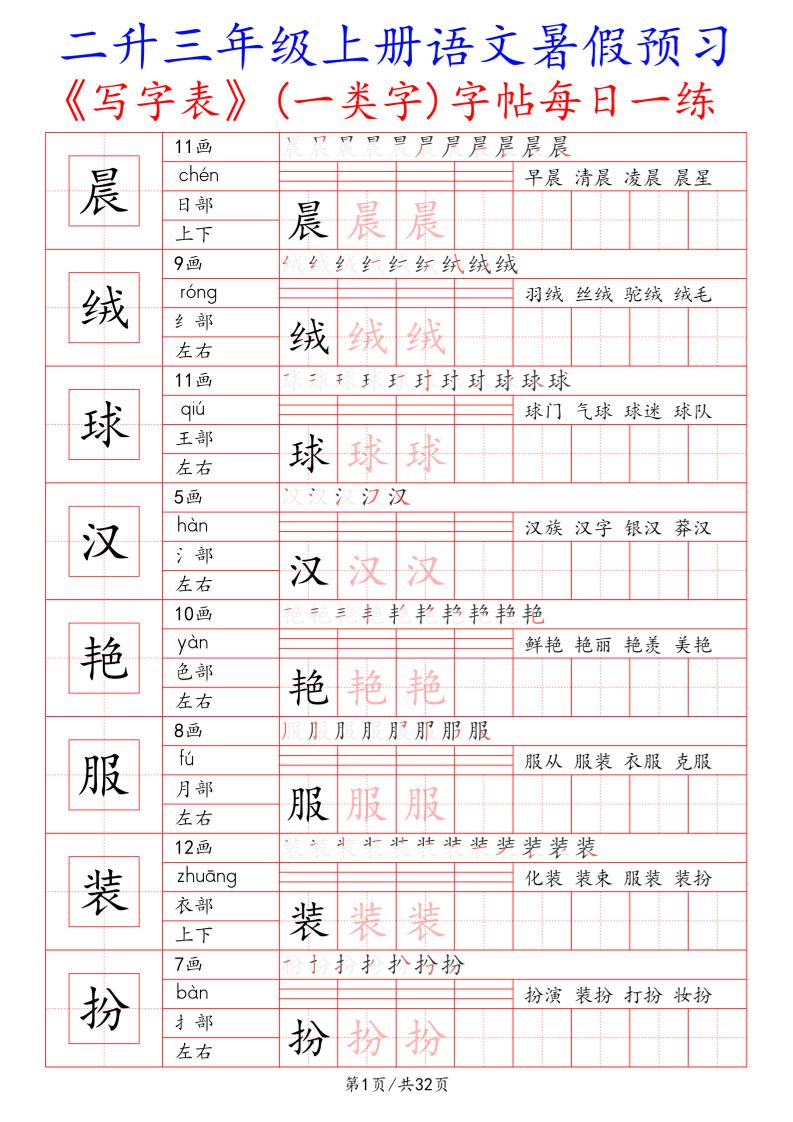 二升三年级上册语文暑假预习
《写字表》(一类字)字帖每日一练
晨
11画
chén
早晨 清晨 凌晨 晨星
日部
上下
晨 晨 晨
绒
9画
róng
羽绒 丝绒 驼绒 绒毛
纟部
左右
绒 绒 绒
球
11画
qiú
球门 气球 球迷 球队
王部
左右
球 球 球
汉
5画
hàn
汉族 汉字 银汉 莽汉
氵部
左右
汉 汉 汉
艳
10画
yàn
鲜艳 艳丽 艳羡 美艳
色部
左右
艳 艳 艳
服
8画
fú
服从 服装 衣服 克服
月部
左右
服 服 服
装
12画
zhuāng
化装 装束 服装 装扮
衣部
上下
装 装 装
扮
7画
bàn
扮演 装扮 打扮 妆扮
扌部
左右
扮 扮 扮
第1页/共32页